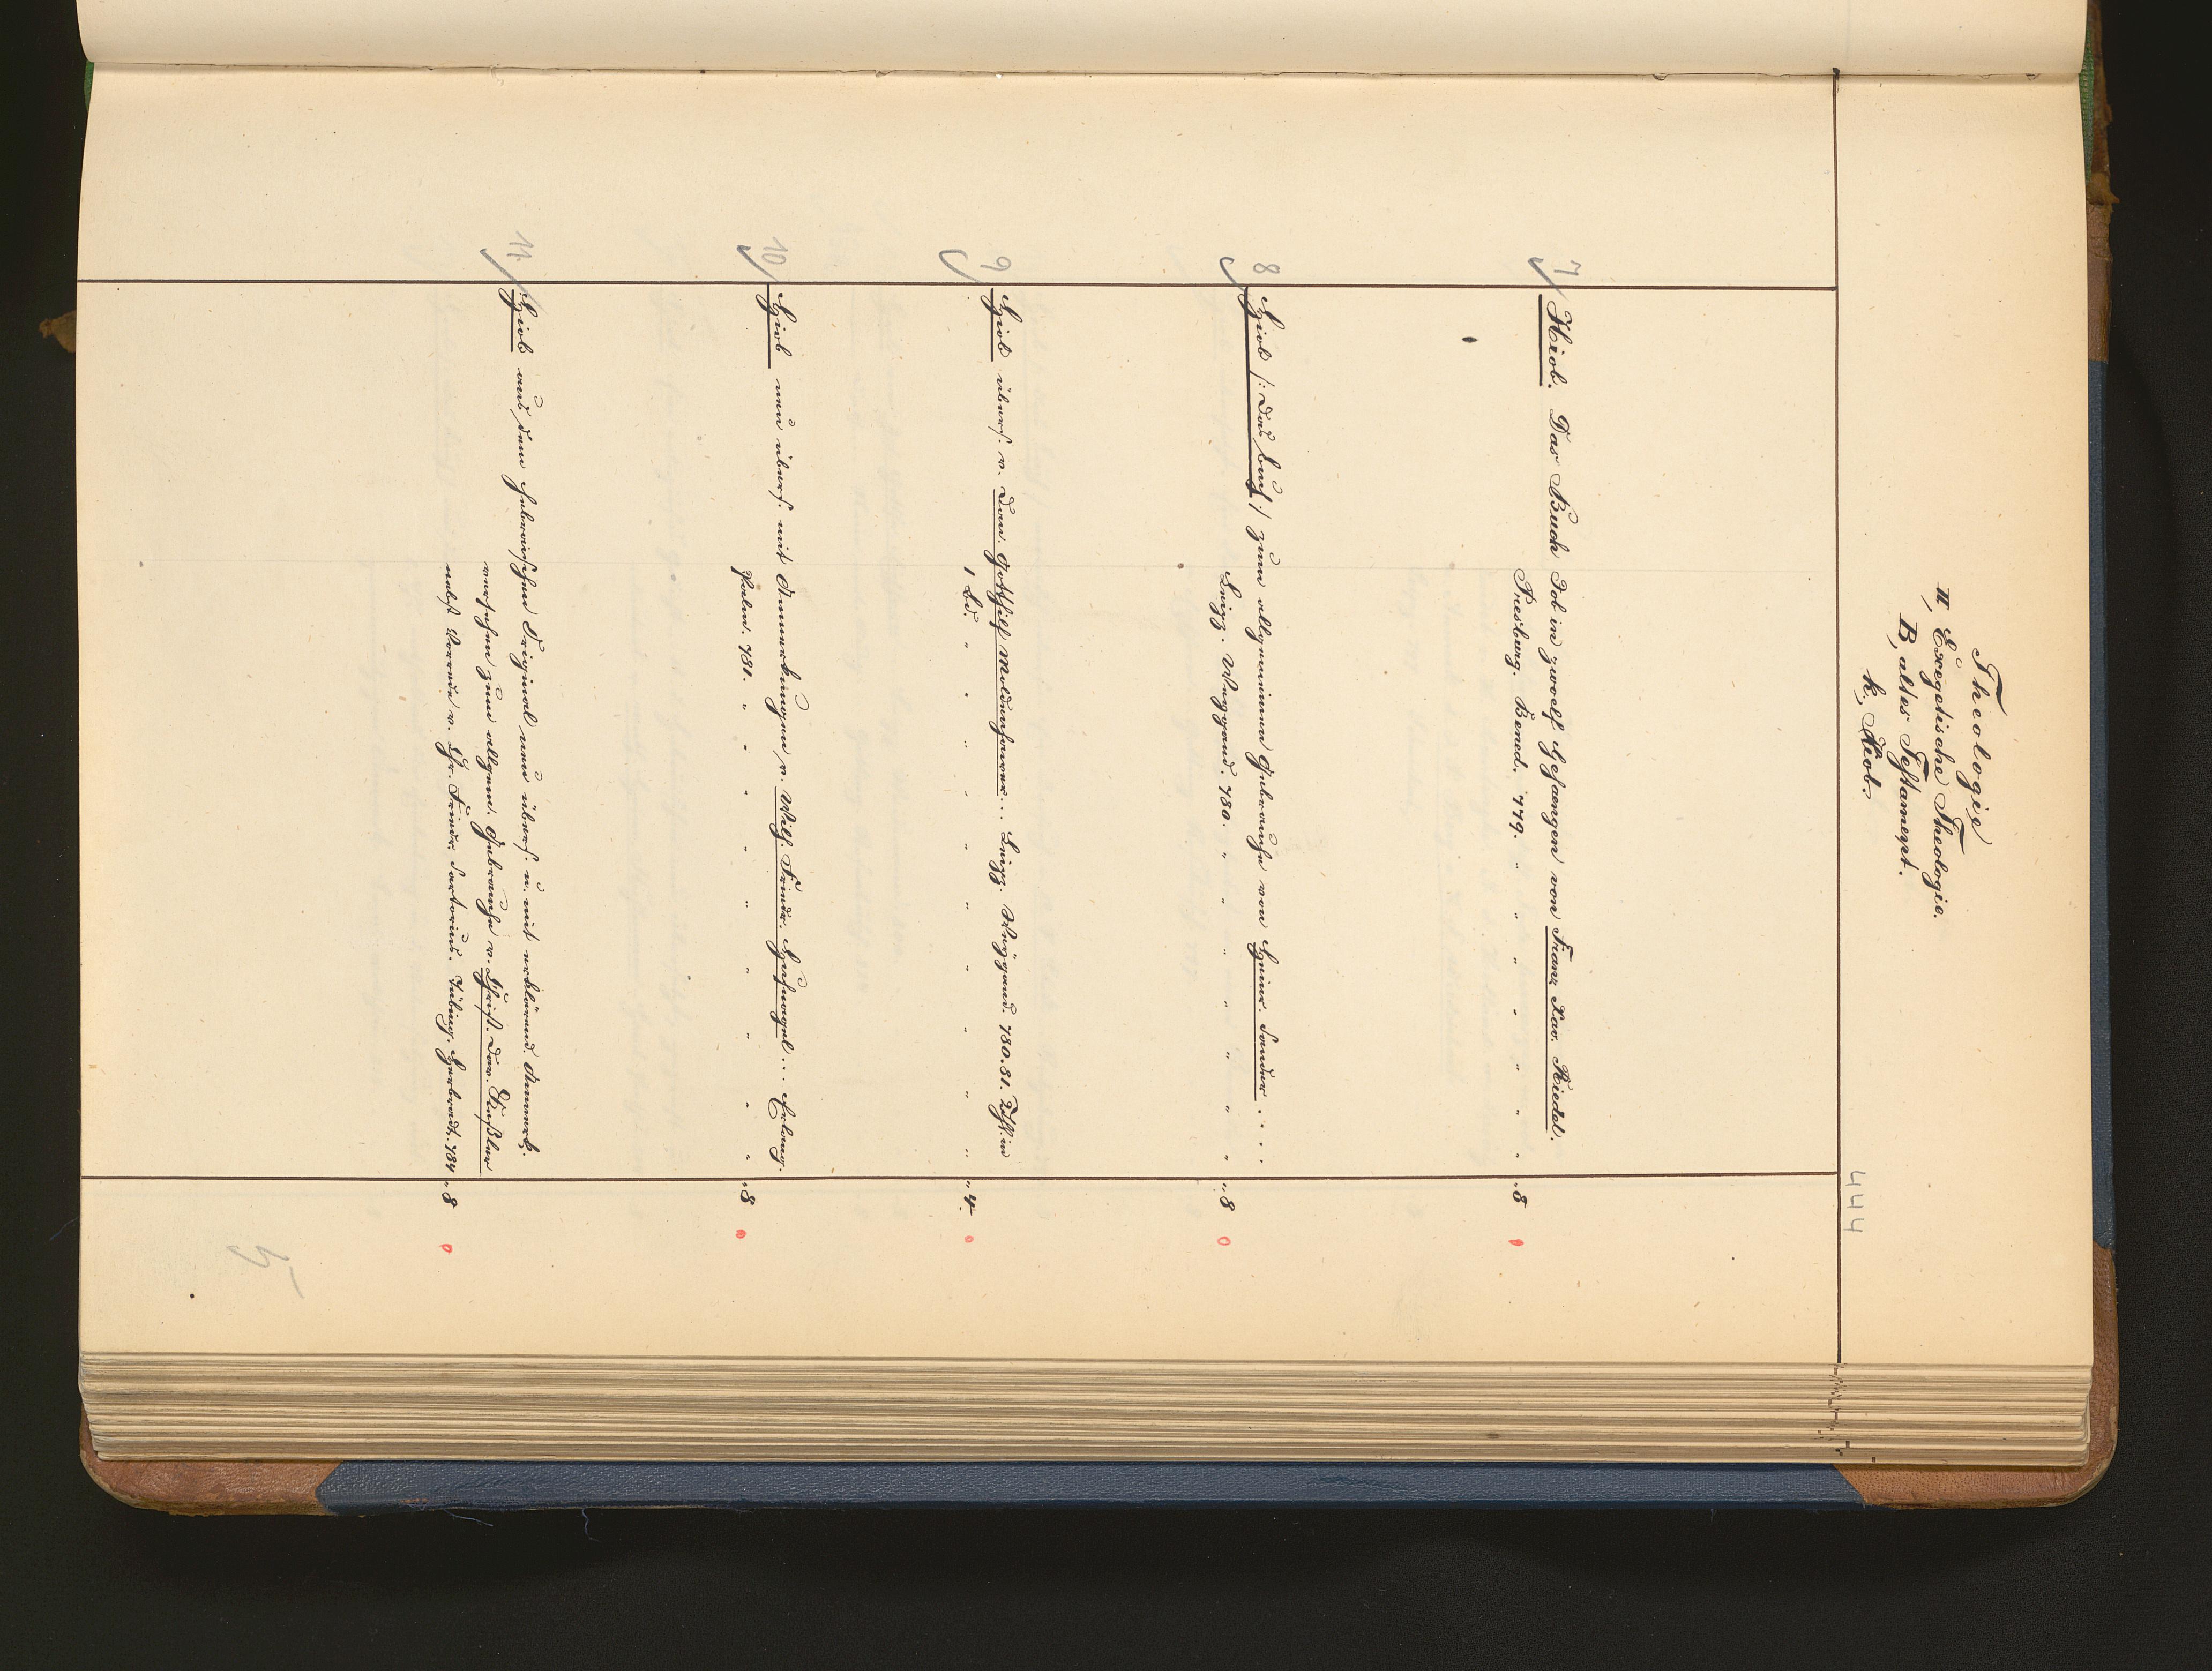 Theologie
II, Exegetische Theologie.
B, altes Testament.
k, Hiob.
444
7 Hiob. Das Buch Job in zwoelf Gesaengen von Franz Xav. Riedel.
Presburg. Bened. 779. " " " " " " " 8
8 Hiob /: das Buch :/ zum allgemeinen Gebrauche von Heinr. Sander . . . .
Leipz. Weygand. 780. " " " " " " " 8
9 Hiob übers. v. Dan. Gotthilf Moldenhawer... Leipz. Weygand. 780.81. 2 Thl. in
1 Bd. " " " " " " " " " " " 4.
10 Hiob neu übers. mit Anmerkungen v. Wilh. Friedr. Hufnagel... Erlang.
Palm. 781. " " " " " " " " " 8
11. Hiob aus dem hebraischen Original neu übers. u. mit erklärend. Anmerk.
versehen zum allgem. Gebrauche v. Christ. Dav. Keßler
nebst Vorrede v. Chr. Friedr. Sartorius. Tübing. Herbrandt. 784 " 8
5